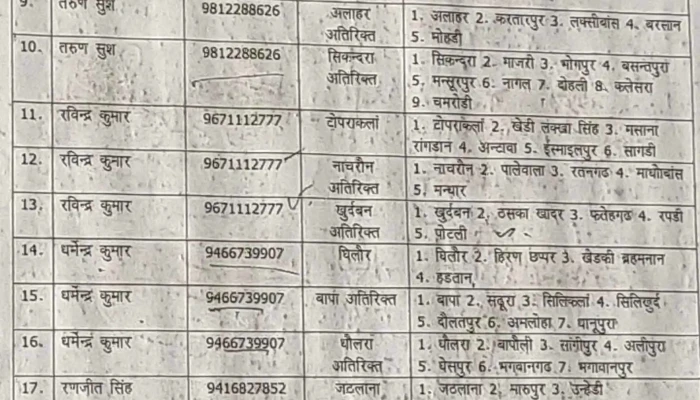 9. तरुण सुश 9812288626 अलाहर अतिरिक्त 1. अलाहर 2. करतारपुर 3. लक्सीबांस 4. बरसान
5. मोहडी
10. तरुण सुश 9812288626 सिकन्दरा अतिरिक्त 1. सिकन्दरा 2. माजरी 3. भोगपुर 4. बसन्तपुरा
5. मन्सूरपुर 6. नागल 7. दोहली 8. कलेसरा
9. बमरोडी
11. रविन्द्र कुमार 9671112777 टोपराकलां 1. टोपराकलां 2. खेडी लक्खा सिंह 3. मसाना
रांगडान 4. अन्टावा 5. ईस्माइलपुर 6. सागडी
12. रविन्द्र कुमार 9671112777 नाचरौन अतिरिक्त 1. नाचरौन 2. पालेवाला 3. रतनगढ 4. माधोबांस
5. मन्धार
13. रविन्द्र कुमार 9671112777 खुर्दबन अतिरिक्त 1. खुर्दबन 2. ठसका खादर 3. फतेहगढ 4. रपडी
5. पोटली
14. धर्मेन्द्र कुमार 9466739907 घिलौर 1. घिलौर 2. हिरण छप्पर 3. खेडकी ब्रहमनान
4. हडतान
15. धर्मेन्द्र कुमार 9466739907 बापा अतिरिक्त 1. बापा 2. सढूरा 3. सिलिकलां 4. सिलिखुर्द
5. दौलतपुर 6. अमलोहा 7. धानूपुरा
16. धर्मेन्द्र कुमार 9466739907 धौलरा अतिरिक्त 1. धौलरा 2. बापौली 3. सांगीपुर 4. अलीपुरा
5. घेसपुर 6. भगवानगढ 7. भगवानपुर
17. रणजीत सिंह 9416827852 जठलाना 1. जठलाना 2. मारुपुर 3. उन्हेडी